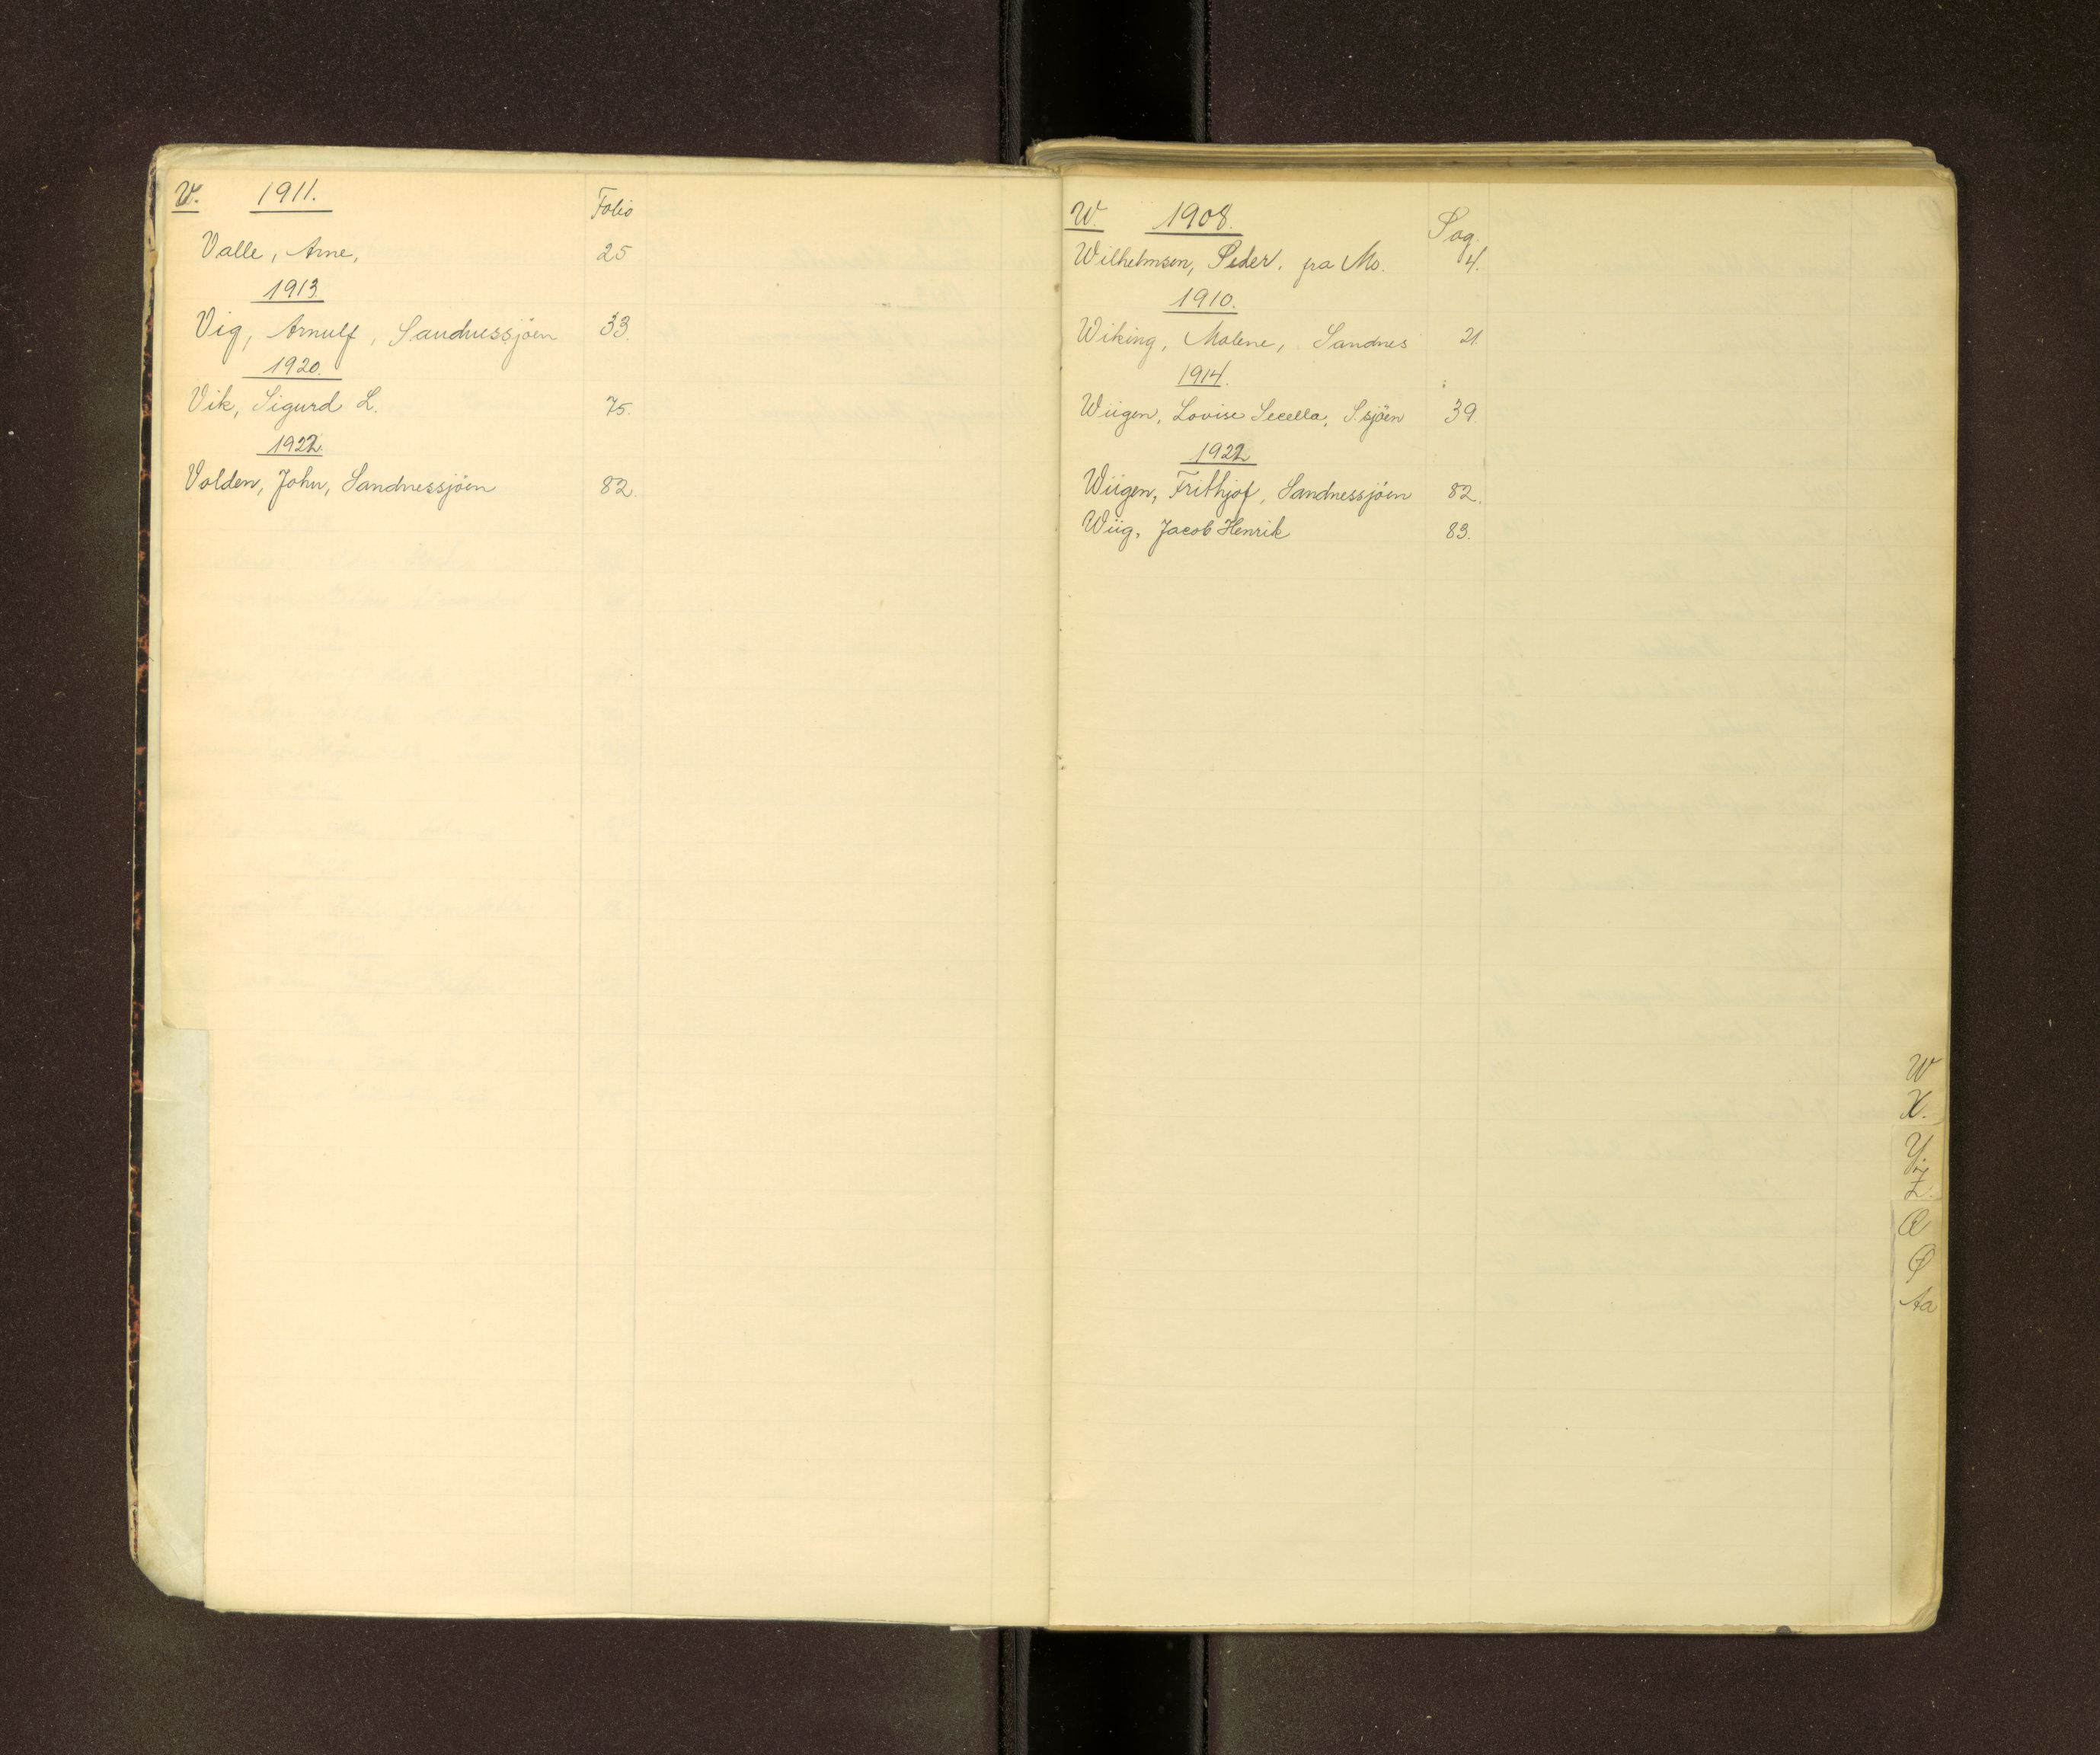 V. 1911. Folio
Valle, Arne, 25
1913
Vig, Arnulf, Sandnessjöen 33.
1920.
Vik, Sigurd L. 75.
1922.
Volden, John, Sandnessjöen 82.
W. 1908. Pag.
Wilhelmsen, Peder, fra Mo. 4.
1910.
Wiking, Malene, Sandnes 21.
1914.
Wiigen, Lovise Secella, S.sjöen 39.
1922
Wiigen, Frithjof, Sandnessjöen 82.
Wiig, Jacob Henrik 83.
W
X.
Y.
Z.
Æ
Ø
Aa